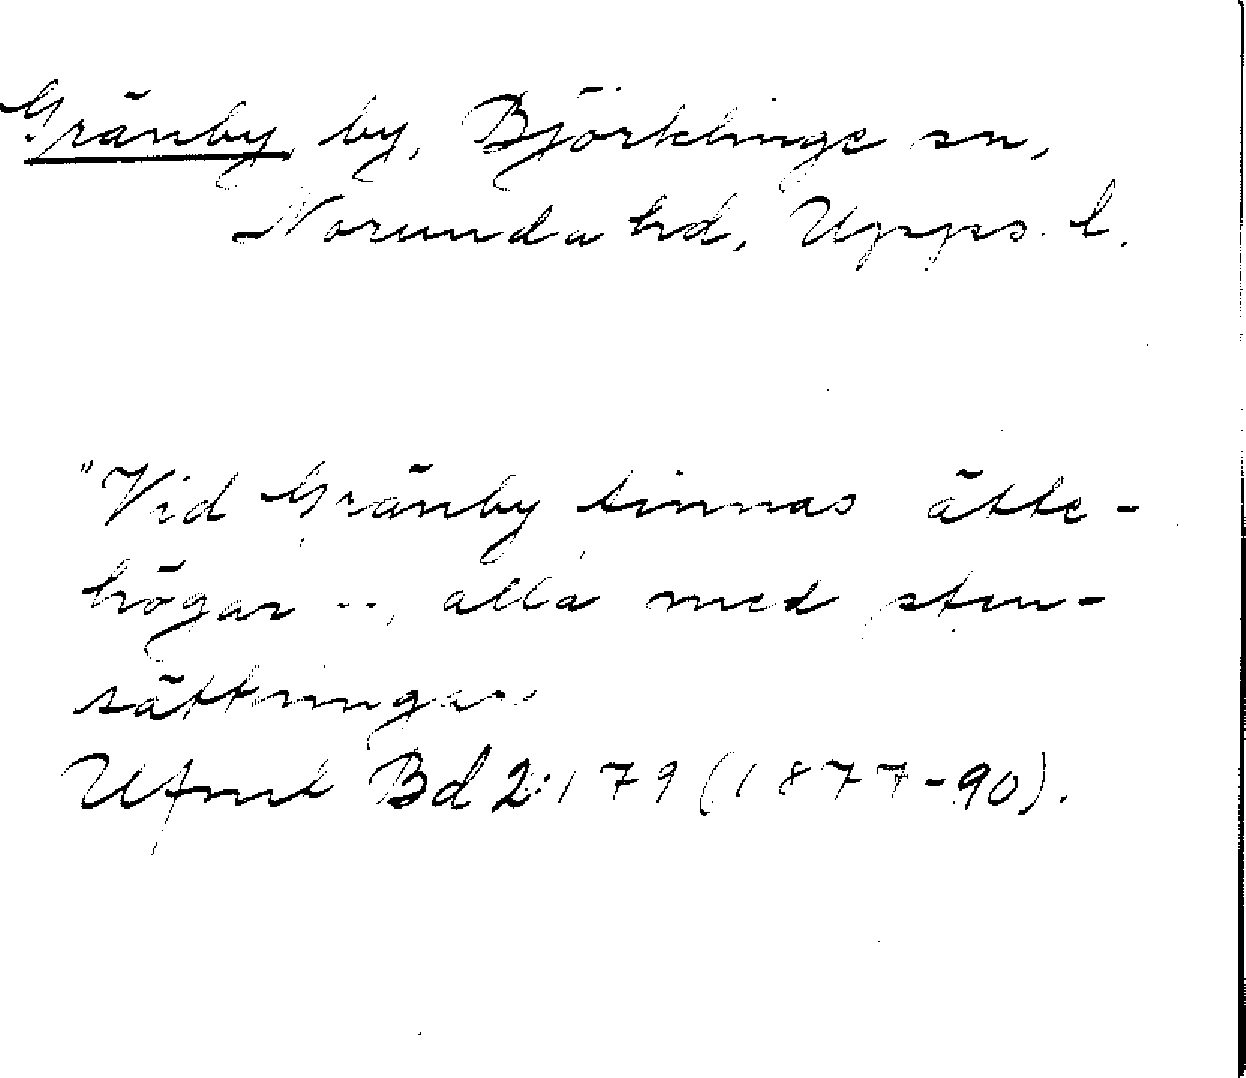 Gränby by, Björklinge sn,
Norunda hd, Upps. l.
"Vid Gränby finnas ätte-
högar .., alla med sten-
sättningar"
Ufmt Bd 2:179 (1877-90).